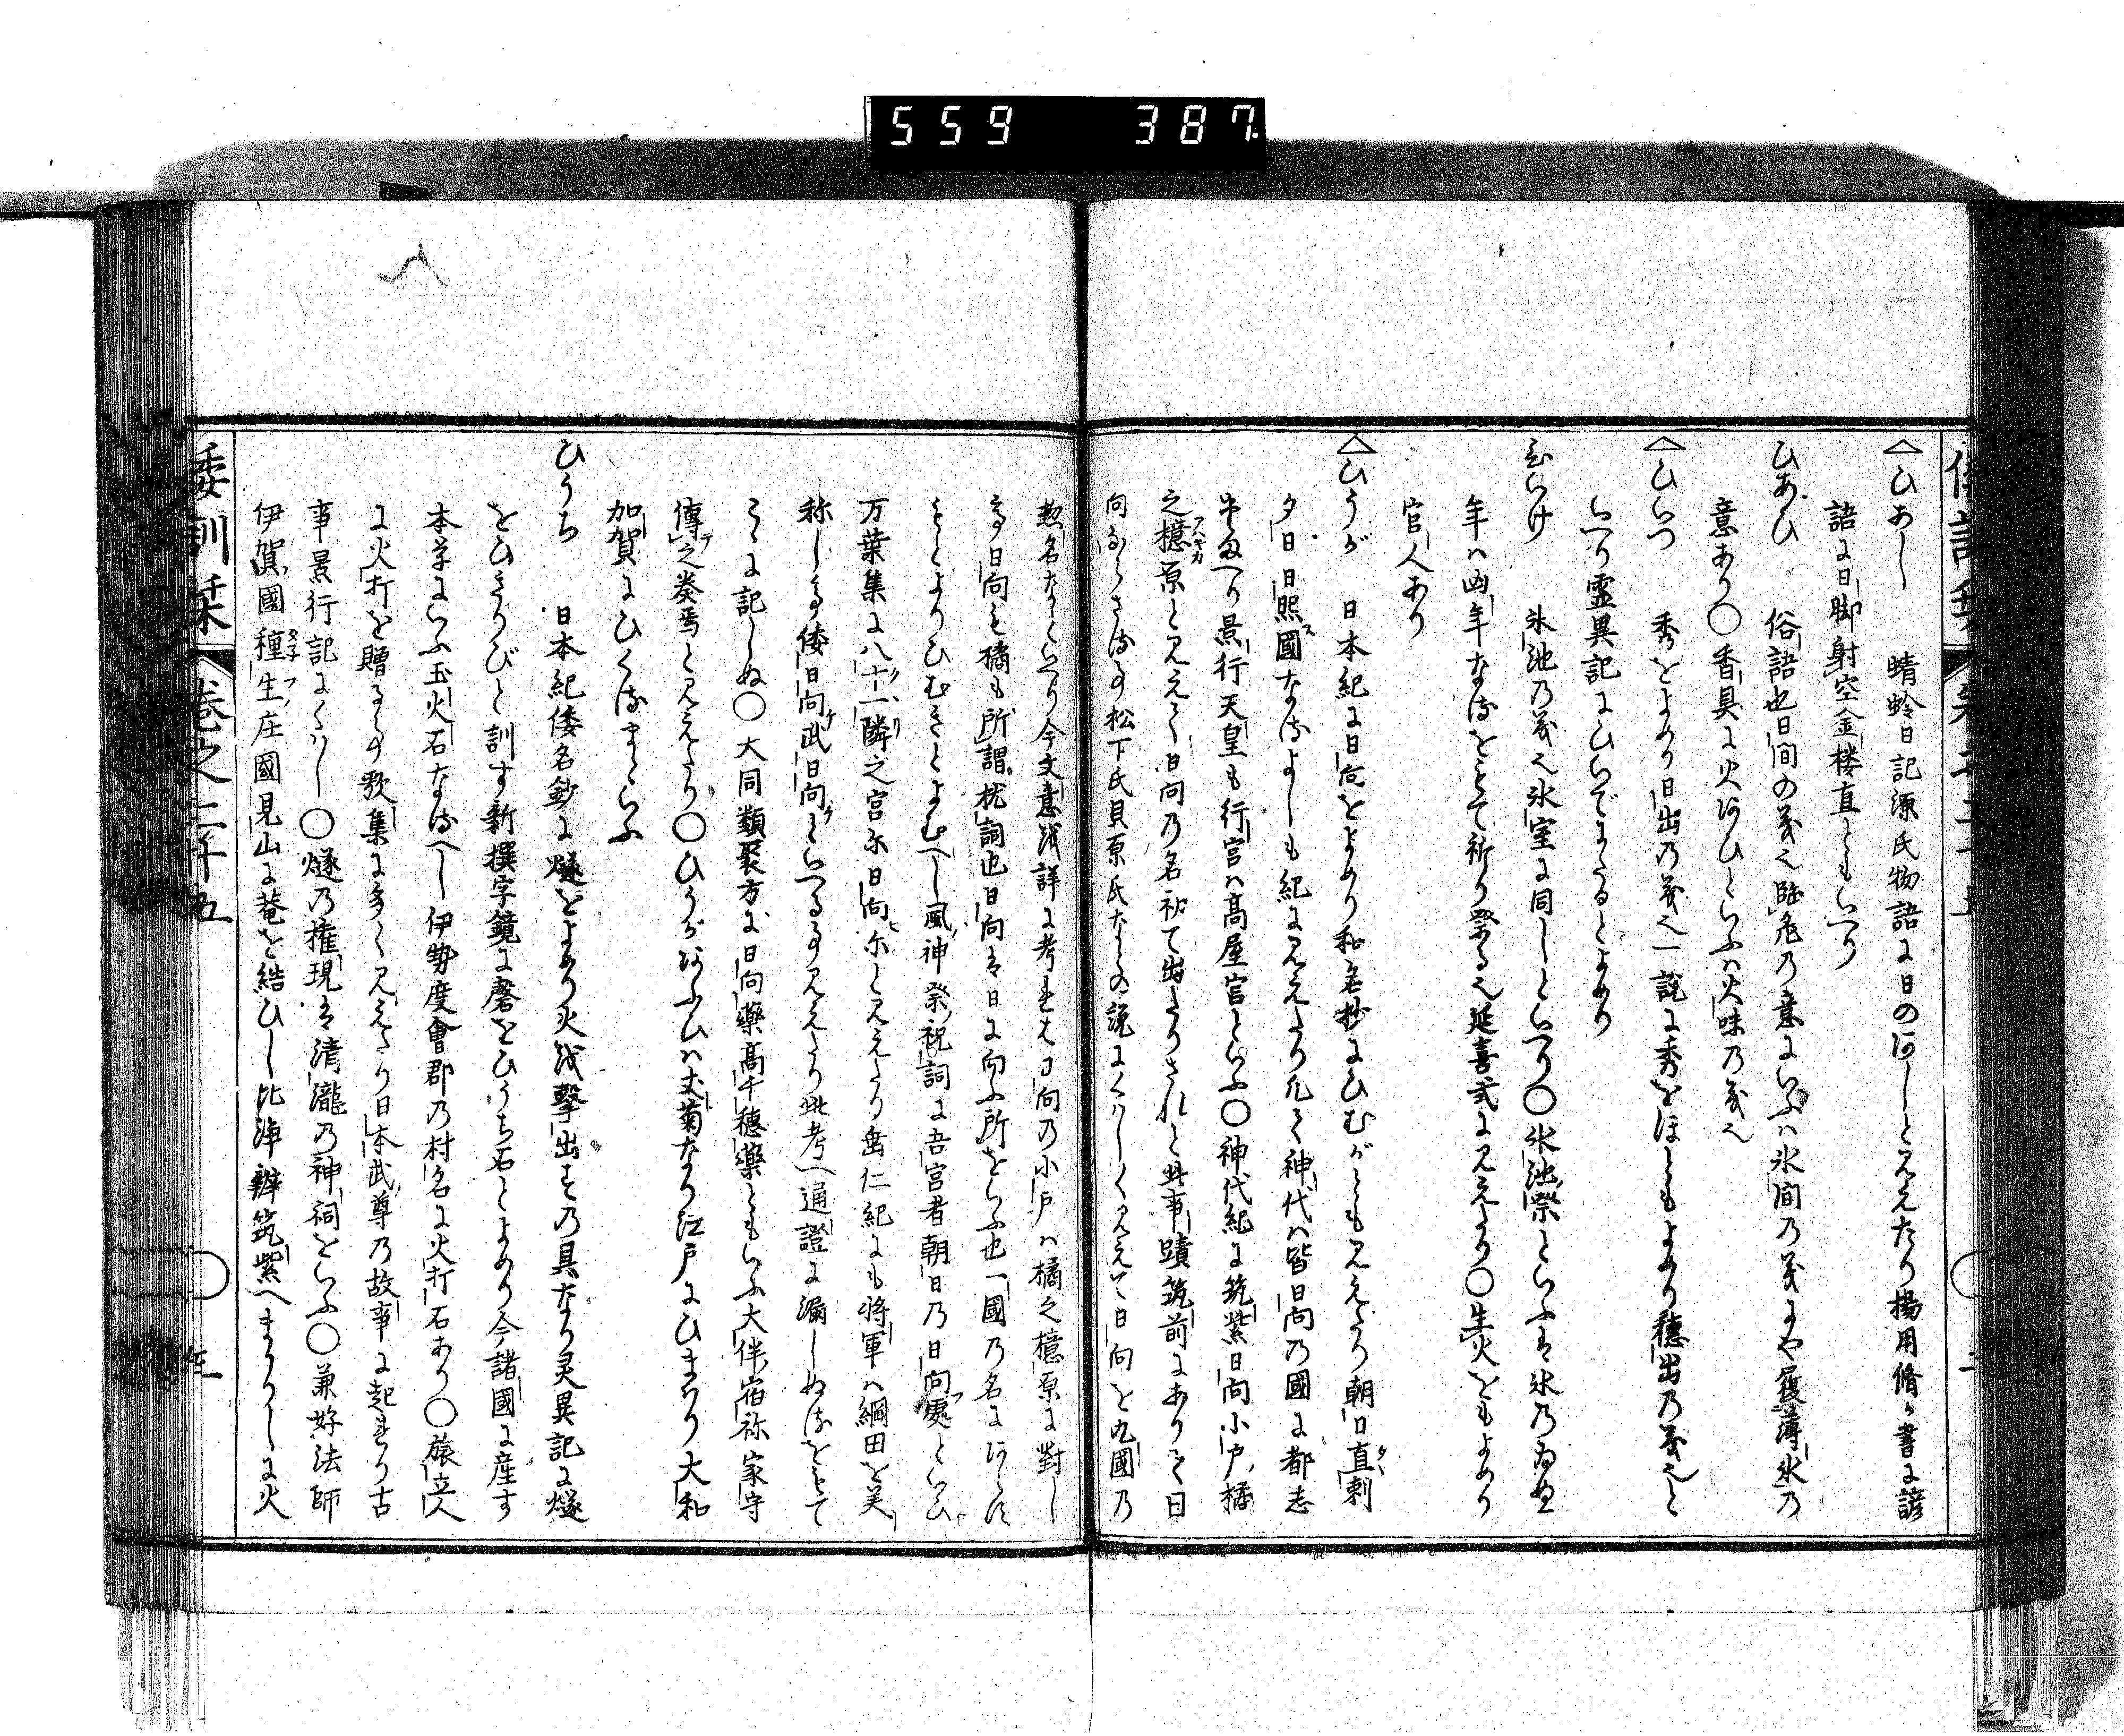 559 387
ひあし 晴蛉日記源氏物語に日のあしとみえたり楊用脩か書に諺
語に日脚射空金楼直ともいへり
ひあひ 俗語也日間の義也臨危の意にいふハ氷間の義にや履薄氷の
意あり○香具に火あひといふハ火味の義也
ひいつ 秀をよめり日出の義也一説に秀をほともよめり穂出の義也と
いへり霊異記にひいでたるとよめり
ひいけ 氷池の義也氷室に同しといへり○氷池祭といふは氷のゐぬ
年ハ凶年なるをもて祈り祭る也延喜式にみえたり○生火をもよめり
官人あり
ひうが 日本紀に日向をよめり和名抄にひむがともみえたり朝日直刺
夕日日照國なるよしも紀にみえたり凡て神代ハ皆日向の國に都志
たまへり景行天皇も行宮ハ高屋宮といふ○神代紀に筑紫日向小戸橘
之檍原とみえて日向の名初て出たりされと此事蹟筑前にありて日
向ならさる事松下氏貝原氏なとの説にくハしくみえて日向を九國の
惣名なといへり今文意を詳に考るに日向の小戸ハ橘之檍原に對し
て日向も橘も所謂枕詞也日向は日に向ふ所をいふ也一國の名にあらす
もとよりひむきとよむへし風神祭祝詞に吾宮者朝日乃日向處といひ
万葉集に八十一隣之宮尓日向尓とみえたり垂仁紀にも将軍八綱田を美
称して倭日向武日向といへる事みえたり此考へ通證に漏しぬるをもて
こゝに記しぬ○大同類聚方に日向藥高千穂藥ともいふ大伴宿祢家守
傳之奏焉とみえたり○ひうがあふひハ丈菊なり江戸にひまわり大和
加賀にひくるまといふ
ひうち 日本紀倭名鈔に燧をよめり火を撃出すの具なり灵異記に燧
をひきりびと訓す新撰字鏡に磬をひうち石とよめり今諸國に産す
本草にいふ玉火石なるへし伊勢度會郡の村名に火打石あり○旅立人
に火打を贈る事歌集に多くみえたり日本武尊の故事に起れり古
事景行記にくハし○燧の権現は清瀧の神祠をいふ○兼好法師
伊賀國種生庄國見山に菴を結ひし比浄辧筑紫へまかりしに火
倭訓栞 巻之二十五 五